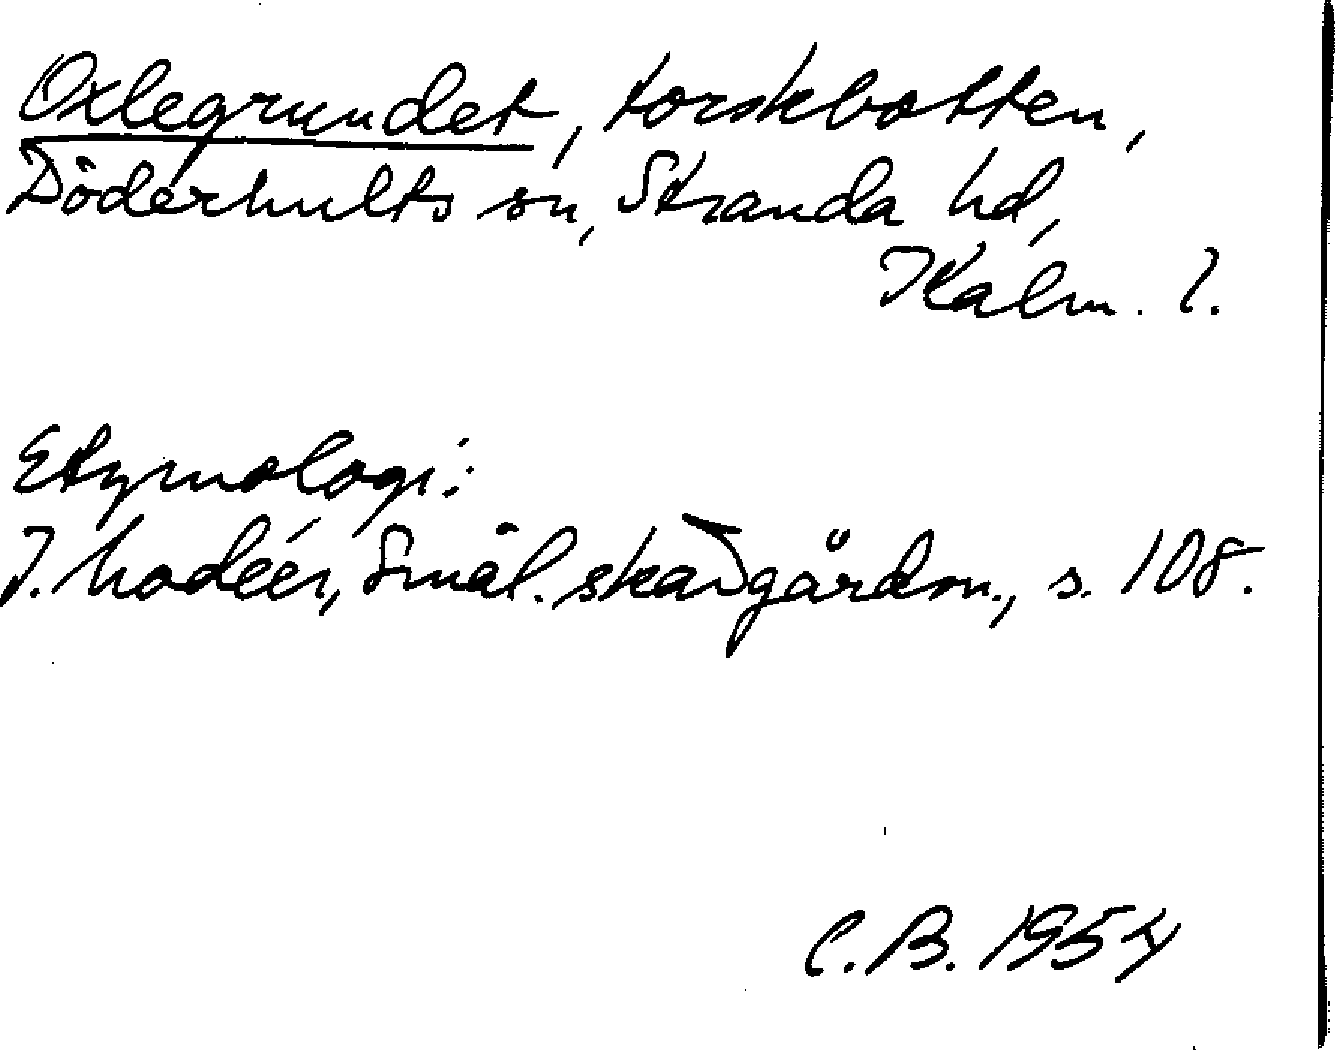 Oxlegrundet, torskbotten,
Döderhults sn, Stranda hd,
Kalm. l.
Etymologi:
I. Modéer, Smål. skärgårdsn., s. 108.
C. B. 1954